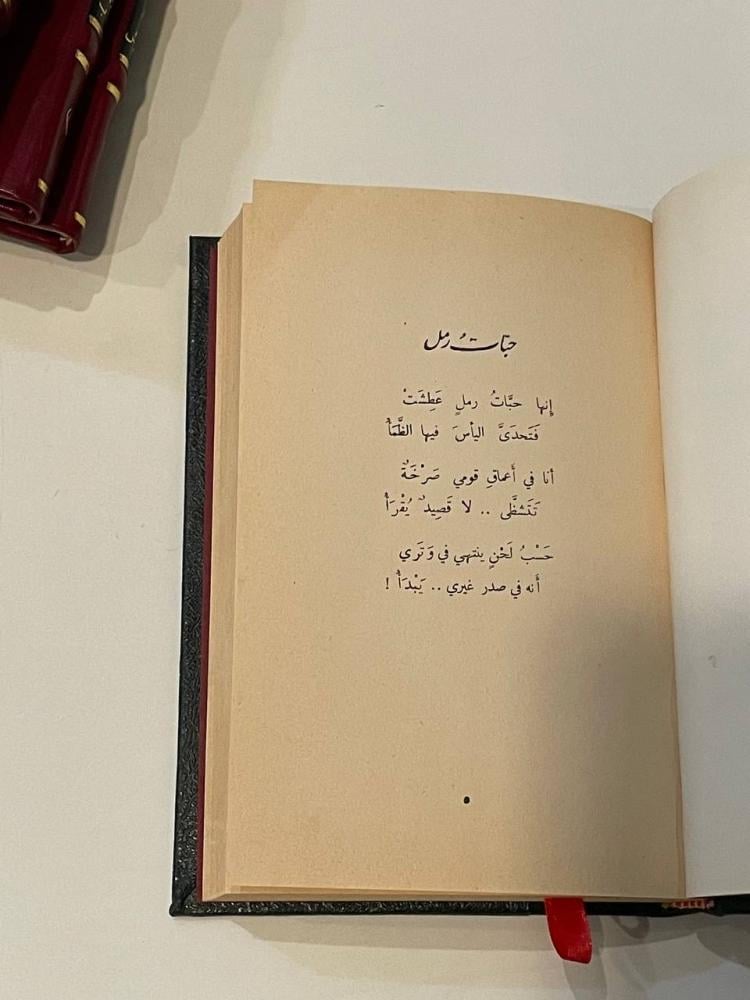 حبّاتُ رمل
إِنها حبَّاتُ رملٍ عَطِشَتْ
فَتَحدَىَّ اليأسَ فيها الظَّمَأُ
أنا في أَعماقِ قومي صَرْخَةٌ
تَتَشظَّى .. لا قَصِيدٌ يُقْرَأُ
حَسْبُ لَحْنٍ ينتهي في وَتَري
أَنه في صدر غيري .. يَبْدَأُ !